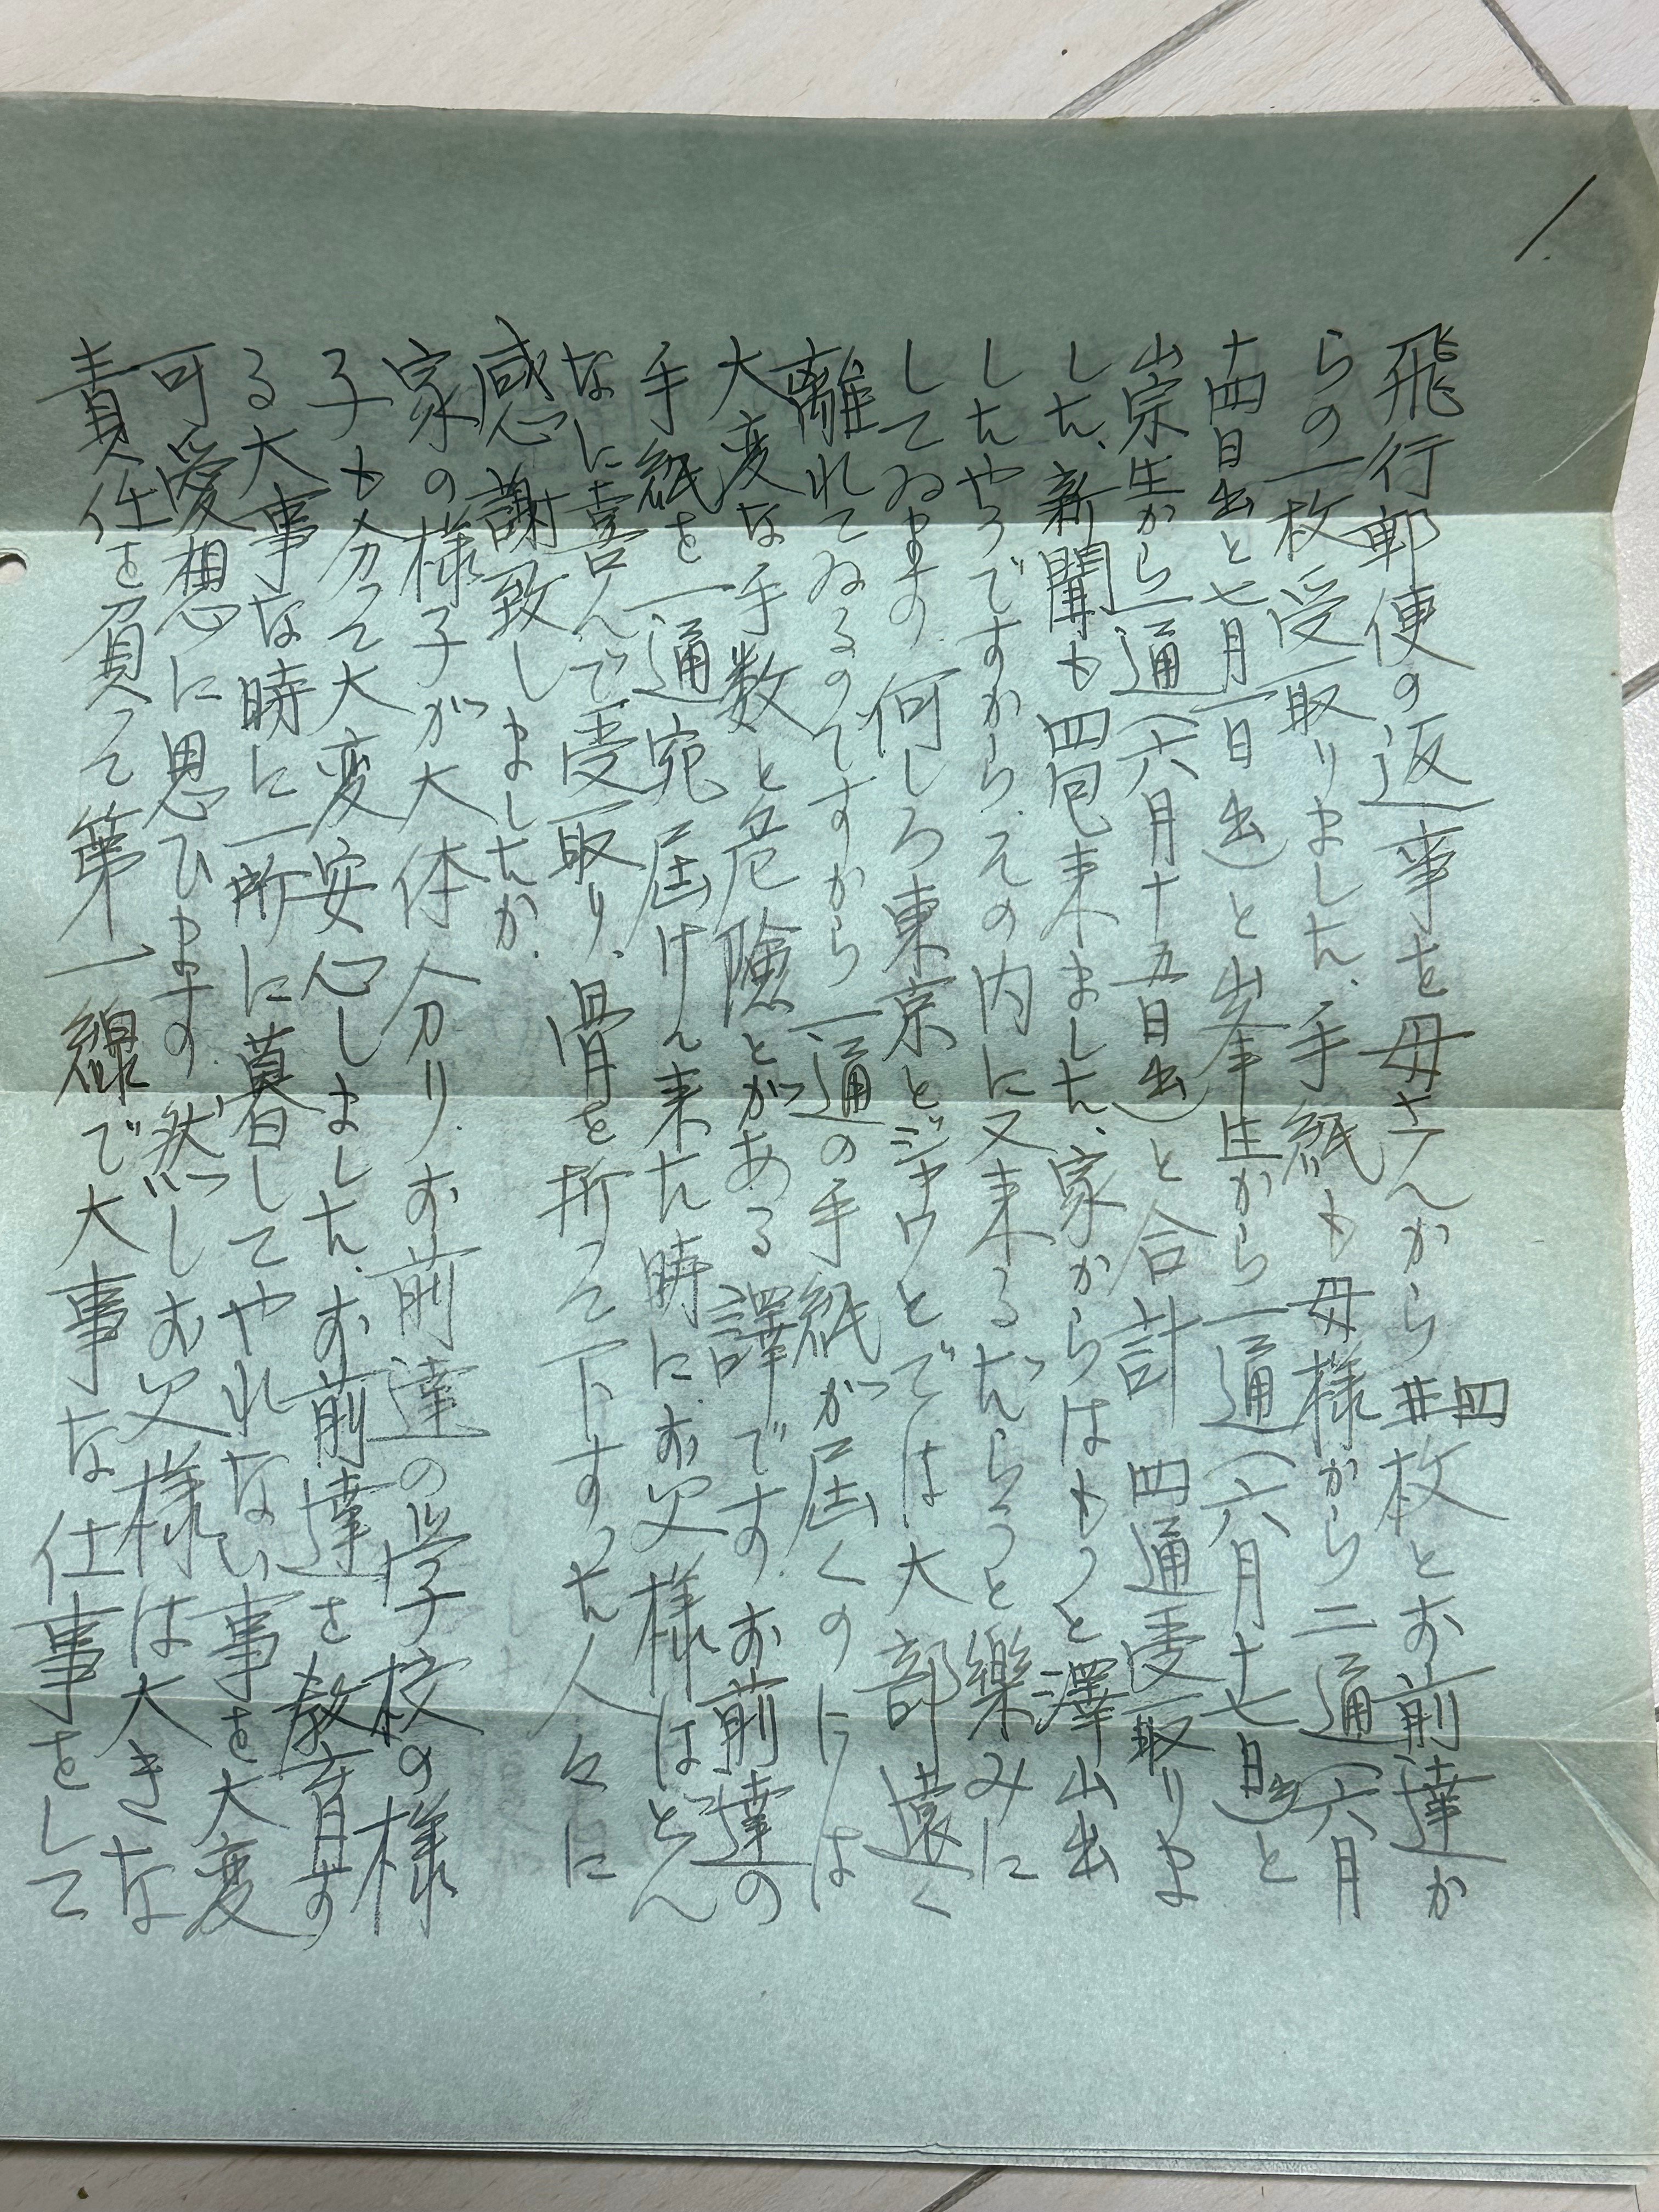 1.
飛行郵便の返事を母さんから四枚とお前達か
らの一枚受取りました、手紙も母様から二通(六月
十四日出と七月一日出)と峯生から一通(六月十七日出)と
宗生から一通(六月十五日出)と合計四通受取りま
した、新聞も四包来ました、家からはもっと澤山出
したやうですから、その内に又来るだらうと樂みに
してゐます。何しろ東京とジャワとでは大部遠く
離れてゐるのですから一通の手紙が届くのには
大変な手数と危険とがある譯です。お前達の
手紙を一通宛届けに来た時にお父様はどん
なに喜んで受取り、骨を折って下すった人々に
感謝致しましたか。
家の様子が大体分り、お前達の学校の様
子も分って大変安心しました、お前達を教育す
る大事な時に一所に暮してやれない事を大変
可愛想に思ひます。然しお父様は大きな
責任を負って第一線で大事な仕事をして